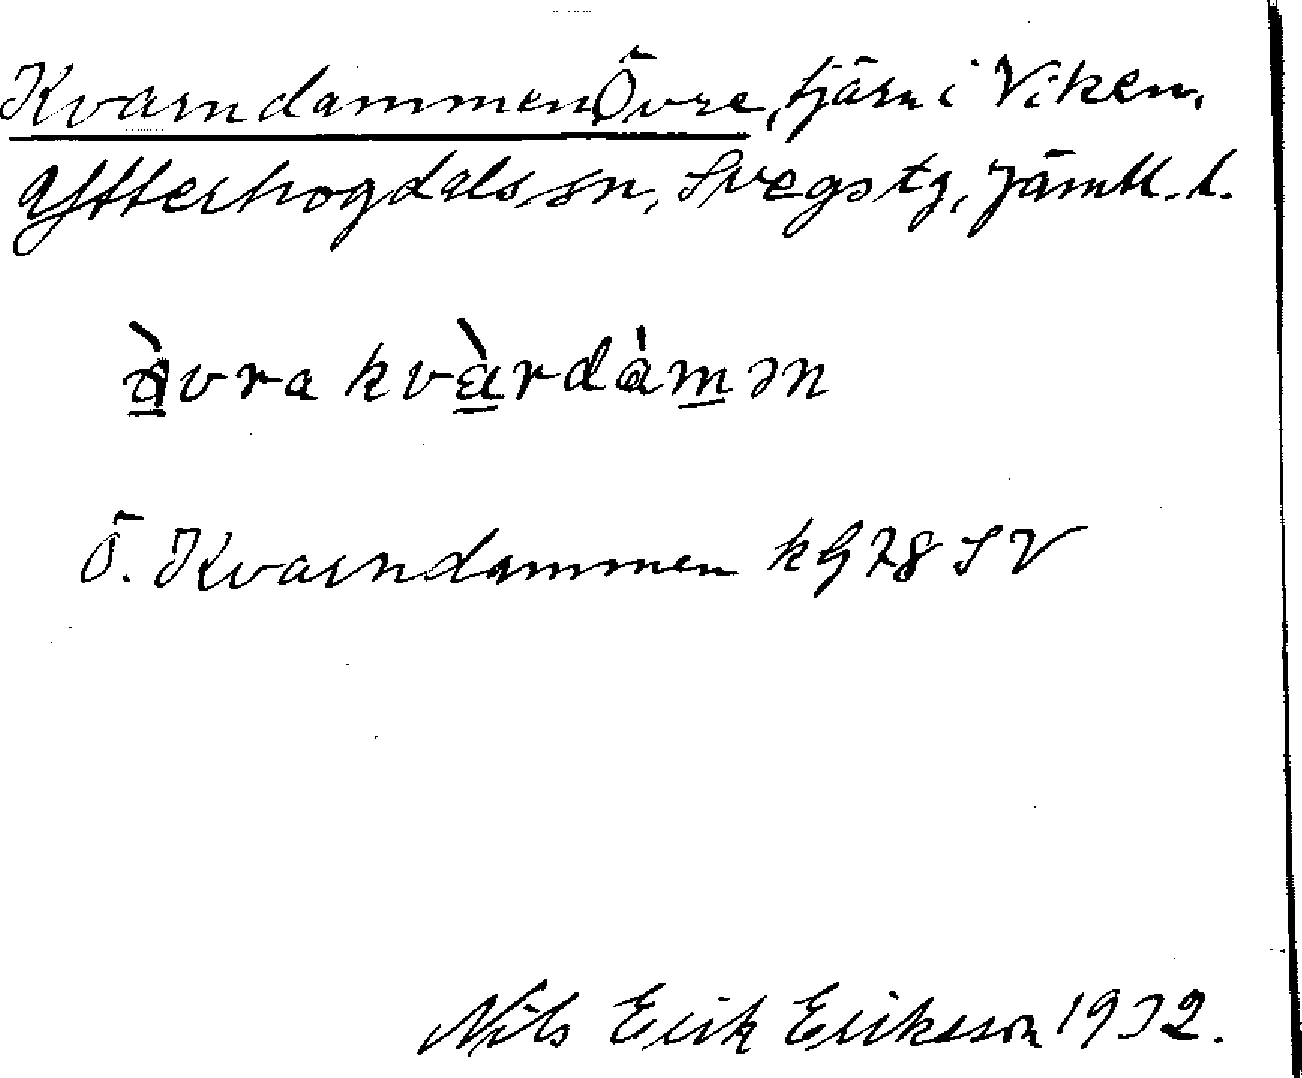 Kvarndammen Övre, tjärn i Viken,
Ytterhogdals sn, Svegs tg, Jämtl. l.
àvra kvàrdàmən
Ö. Kvarndammen k G 78 SV
Nils Erik Eriksson 1932.